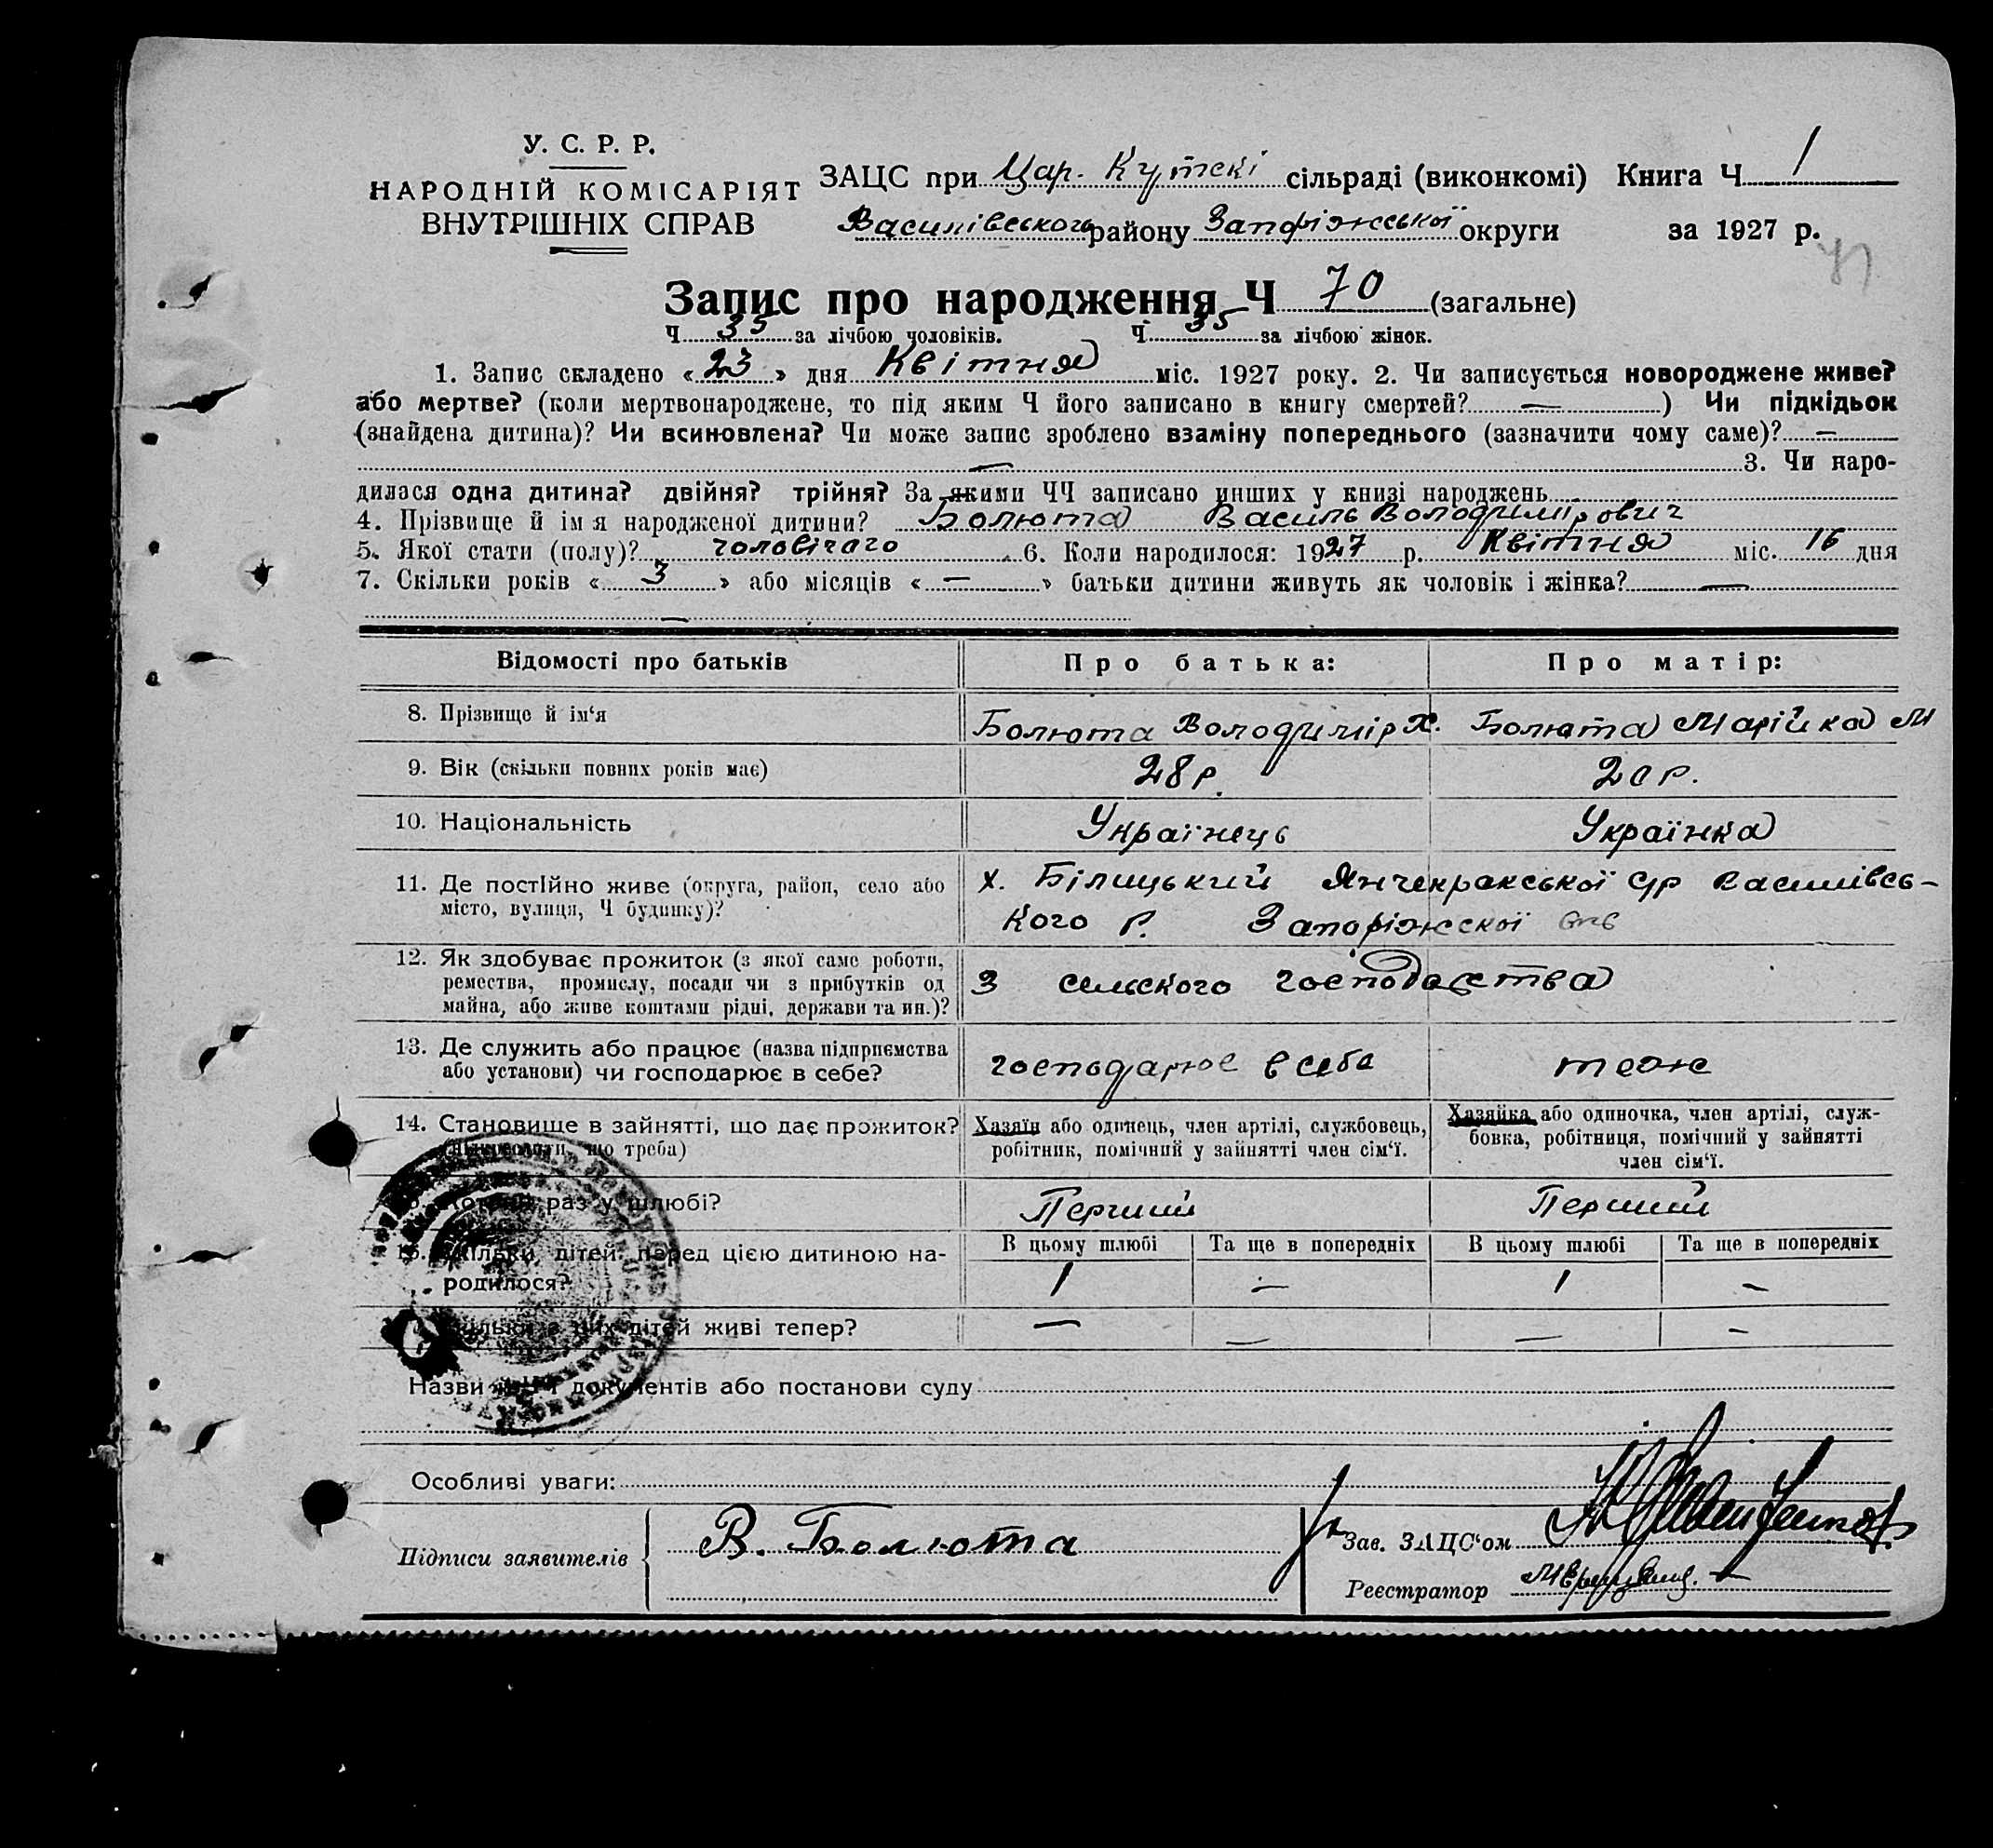 У. С. Р. Р.
НАРОДНІЙ КОМІСАРІЯТ
ВНУТРІШНІХ СПРАВ
ЗАЦС при Цар. Кутскі сільраді (виконкомі) Книга Ч 1
Василівського району Запоріжської округи за 1927 р.
Запис про народження Ч 70 (загальне)
Ч 35 за лічбою чоловіків. Ч 35 за лічбою жінок.
1. Запис складено « 23 » дня Квітня міс. 1927 року. 2. Чи записується новороджене живе?
або мертве? (коли мертвонароджене, то під яким Ч його записано в книгу смертей? — ) Чи підкідьок
(знайдена дитина)? Чи всиновлена? Чи може запис зроблено взаміну попереднього (зазначити чому саме)? —
— 3. Чи наро-
дилася одна дитина? двійня? трійня? За якими ЧЧ записано инших у книзі народжень
4. Прізвище й ім я народженої дитини? Болюта Василь Володимірович
5. Якої стати (полу)? чоловічаго 6. Коли народилося: 1927 р. Квітня міс. 16 дня
7. Скільки років « 3 » або місяців « — » батьки дитини живуть як чоловік і жінка? —
—
Відомості про батьків Про батька: Про матір:
8. Прізвище й ім‘я Болюта Володимір Х. Болюта Марійка М
9. Вік (скільки повних років має) 28 р. 20 р.
10. Національність Українець Українка
11. Де постійно живе (округа, район, село або х. Білицький Янчекракської с/р Василівсь-
місто, вулиця, Ч будинку)? кого р. Запоріжскої
12. Як здобуває прожиток (з якої саме роботи,
ремества, промислу, посади чи з прибутків од З сельского господарства
майна, або живе коштами рідні, держави та ин.)?
13. Де служить або працює (назва підприємства господарює в себе теж
або установи) чи господарює в себе?
14. Становище в зайнятті, що дає прожиток? Хазяїн або одинець, член артілі, службовець, Хазяйка або одиночка, член артілі, служ-
(підкреслити, що треба) робітник, помічний у зайнятті член сім‘ї. бовка, робітниця, помічний у зайнятті
член сім‘ї.
раз у шлюбі? Перший Перший
Скільки дітей перед цією дитиною на- В цьому шлюбі Та ще в попередніх В цьому шлюбі Та ще в попередніх
родилося? 1 — 1 —
Скільки з них дітей живі тепер? — — — —
Назви документів або постанови суду
Особливі уваги:
Підписи заявителів В. Болюта Зав. ЗАЦС‘ом
Реєстратор